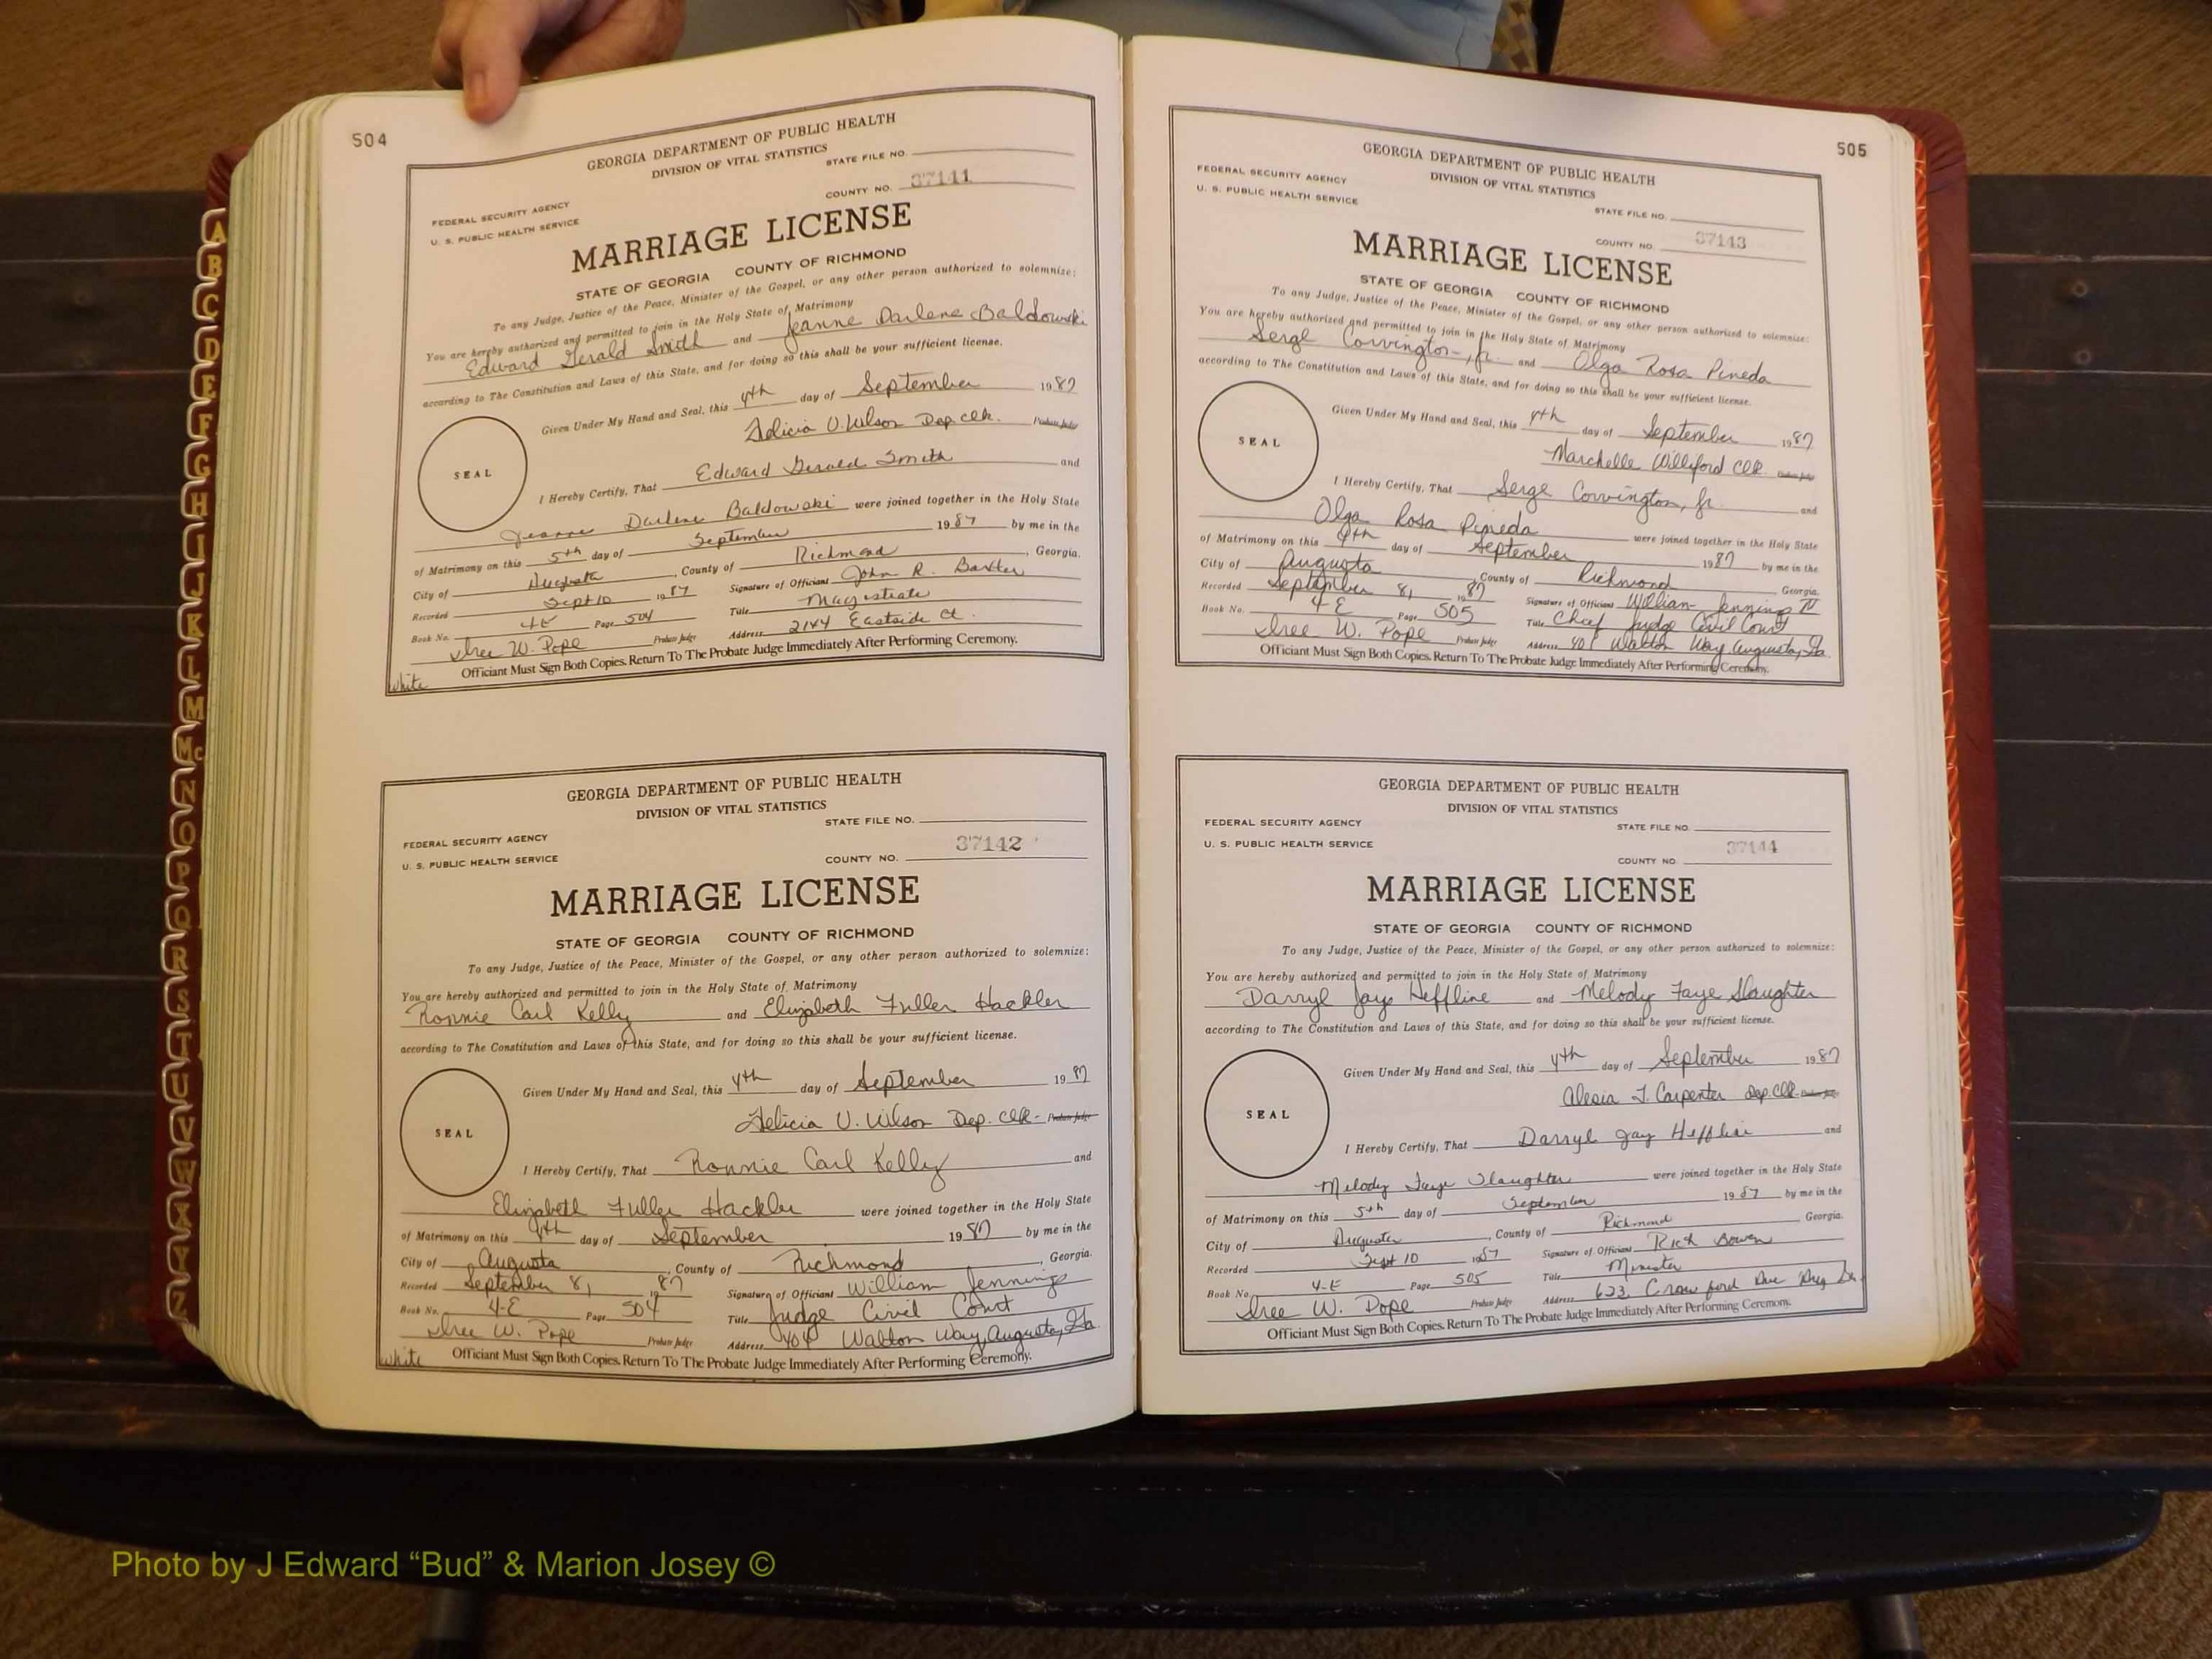 504
GEORGIA DEPARTMENT OF PUBLIC HEALTH
DIVISION OF VITAL STATISTICS
STATE FILE NO.
COUNTY NO. 37141
FEDERAL SECURITY AGENCY
U. S. PUBLIC HEALTH SERVICE
MARRIAGE LICENSE
STATE OF GEORGIA COUNTY OF RICHMOND
To any Judge, Justice of the Peace, Minister of the Gospel, or any other person authorized to solemnize:
You are hereby authorized and permitted to join in the Holy State of Matrimony
Edward Gerald Smith and Jeanne Darlene Baldowski
according to The Constitution and Laws of this State, and for doing so this shall be your sufficient license.
Given Under My Hand and Seal, this 4th day of September 1987
Felicia V. Wilson Dep. Clk. Probate Judge
SEAL
I Hereby Certify, That Edward Gerald Smith and
Jeanne Darlene Baldowski were joined together in the Holy State
of Matrimony on this 5th day of September 1987 by me in the
City of Augusta, County of Richmond, Georgia.
Recorded Sept 10 1987 Signature of Officiant John R. Baxter
Book No. 4-E Page 504 Title Magistrate
Iree W. Pope Probate Judge Address 2144 Eastside Ct.
Officiant Must Sign Both Copies. Return To The Probate Judge Immediately After Performing Ceremony.
White
GEORGIA DEPARTMENT OF PUBLIC HEALTH
DIVISION OF VITAL STATISTICS
STATE FILE NO.
FEDERAL SECURITY AGENCY
U. S. PUBLIC HEALTH SERVICE
COUNTY NO. 37142
MARRIAGE LICENSE
STATE OF GEORGIA COUNTY OF RICHMOND
To any Judge, Justice of the Peace, Minister of the Gospel, or any other person authorized to solemnize:
You are hereby authorized and permitted to join in the Holy State of Matrimony
Ronnie Carl Kelly and Elizabeth Fuller Hackler
according to The Constitution and Laws of this State, and for doing so this shall be your sufficient license.
Given Under My Hand and Seal, this 4th day of September 1987
Felicia V. Wilson Dep. Clk- Probate Judge
SEAL
I Hereby Certify, That Ronnie Carl Kelly and
Elizabeth Fuller Hackler were joined together in the Holy State
of Matrimony on this 4th day of September 1987 by me in the
City of Augusta, County of Richmond, Georgia.
Recorded September 8, 1987 Signature of Officiant William Jennings
Book No. 4-E Page 504 Title Judge Civil Court
Iree W. Pope Probate Judge Address 404 Walton Way, Augusta, Ga.
Officiant Must Sign Both Copies. Return To The Probate Judge Immediately After Performing Ceremony.
White
505
GEORGIA DEPARTMENT OF PUBLIC HEALTH
DIVISION OF VITAL STATISTICS
FEDERAL SECURITY AGENCY
U. S. PUBLIC HEALTH SERVICE
STATE FILE NO.
COUNTY NO. 37143
MARRIAGE LICENSE
STATE OF GEORGIA COUNTY OF RICHMOND
To any Judge, Justice of the Peace, Minister of the Gospel, or any other person authorized to solemnize:
You are hereby authorized and permitted to join in the Holy State of Matrimony
Serge Corvington, Jr. and Olga Rosa Pineda
according to The Constitution and Laws of this State, and for doing so this shall be your sufficient license.
Given Under My Hand and Seal, this 4th day of September 1987
Marchelle Williford Clk Probate Judge
SEAL
I Hereby Certify, That Serge Corvington, Jr. and
Olga Rosa Pineda were joined together in the Holy State
of Matrimony on this 4th day of September 1987 by me in the
City of Augusta County of Richmond Georgia.
Recorded September 8, 1987 Signature of Officiant William Jennings IV
Book No. 4-E Page 505 Title Chief Judge Civil Court
Iree W. Pope Probate Judge Address 401 Walton Way Augusta, Ga.
Officiant Must Sign Both Copies. Return To The Probate Judge Immediately After Performing Ceremony.
GEORGIA DEPARTMENT OF PUBLIC HEALTH
DIVISION OF VITAL STATISTICS
FEDERAL SECURITY AGENCY
STATE FILE NO.
U. S. PUBLIC HEALTH SERVICE
COUNTY NO. 37144
MARRIAGE LICENSE
STATE OF GEORGIA COUNTY OF RICHMOND
To any Judge, Justice of the Peace, Minister of the Gospel, or any other person authorized to solemnize:
You are hereby authorized and permitted to join in the Holy State of Matrimony
Darryl Jaye Heffline and Melody Faye Slaughter
according to The Constitution and Laws of this State, and for doing so this shall be your sufficient license.
Given Under My Hand and Seal, this 4th day of September 1987
Alesia T. Carpenter Dep. Clk. Probate Judge
SEAL
I Hereby Certify, That Darryl Jay Heffline and
Melody Faye Slaughter were joined together in the Holy State
of Matrimony on this 5th day of September 1987 by me in the
City of Augusta, County of Richmond Georgia.
Recorded Sept 10 1987 Signature of Officiant Rick Bowen
Book No. 4-E Page 505 Title Minister
Iree W. Pope Probate Judge Address 623 Crawford Ave Aug Ga.
Officiant Must Sign Both Copies. Return To The Probate Judge Immediately After Performing Ceremony.
A
B
C
D
E
F
G
H
I
J
K
L
M
Mc
N
O
P
Q
R
S
T
U
V
W
X
Y
Z
Photo by J Edward “Bud” & Marion Josey ©